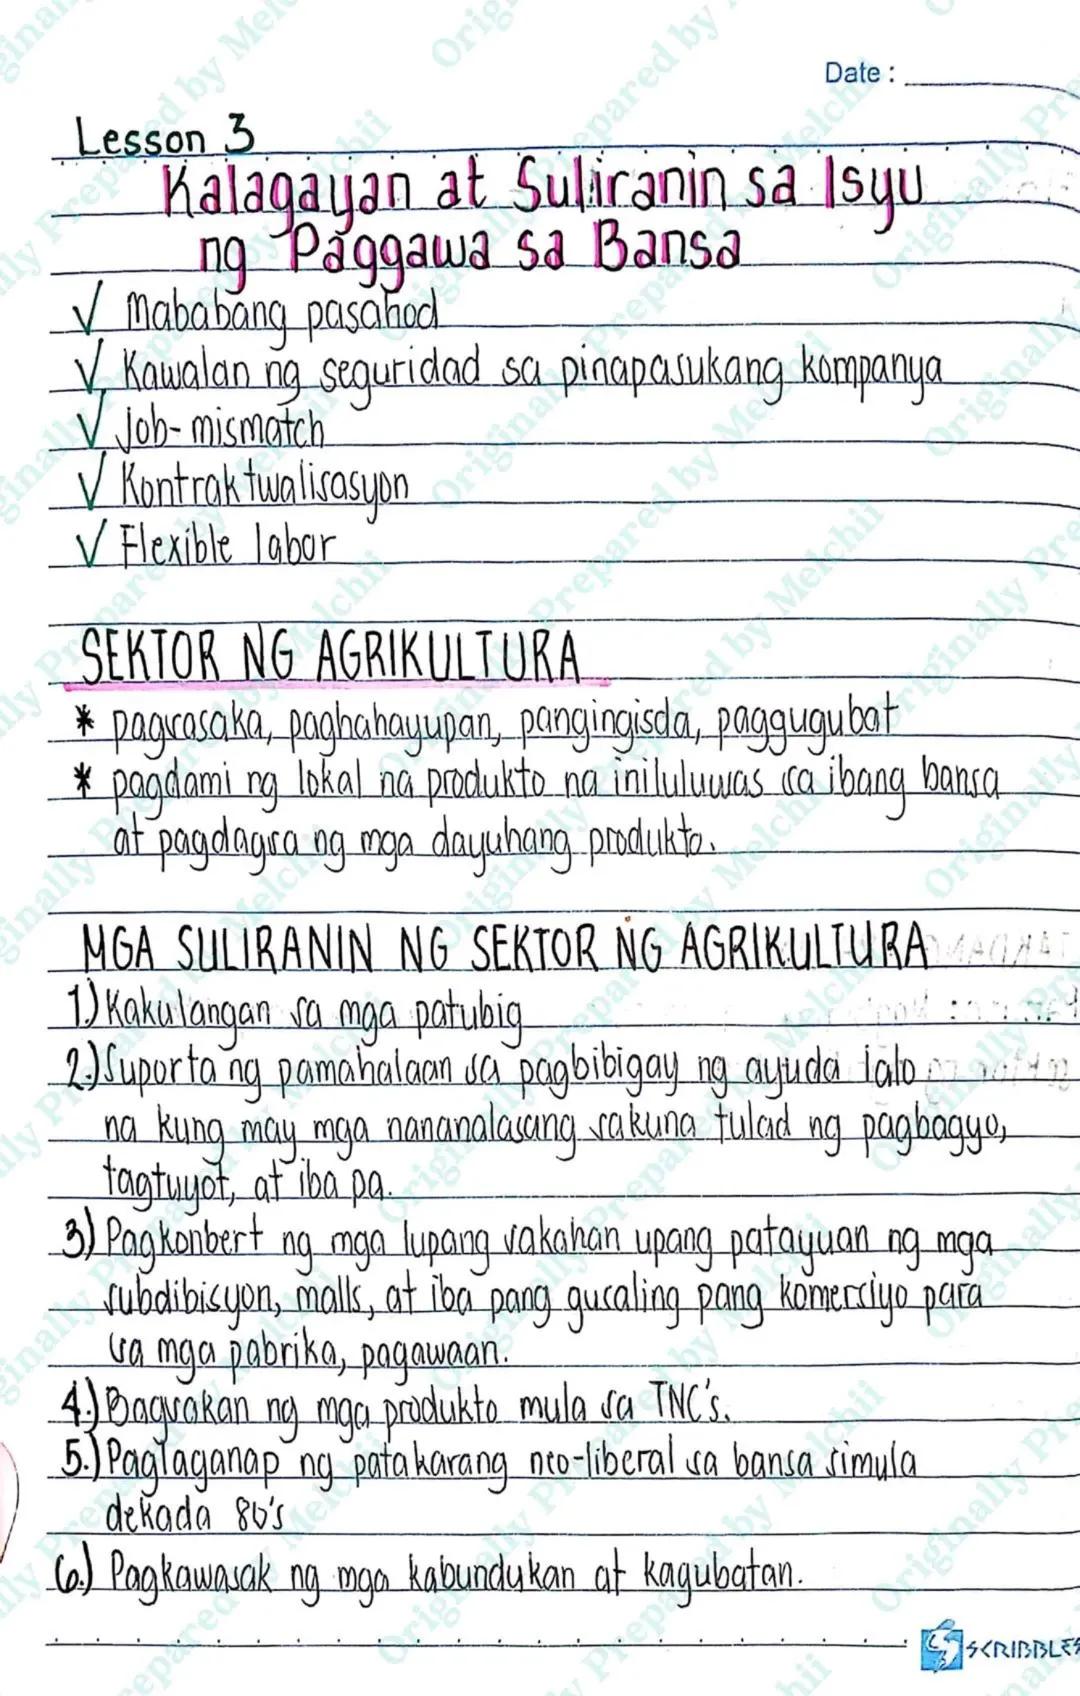 Date :
Lesson 3
Kalagayan at Suliranin sa Isyu
ng Paggawa sa Bansa
√ Mababang pasahod
√ Kawalan ng seguridad sa pinapasukang kompanya
√ Job-mismatch
√ Kontraktwalisasyon
√ Flexible labor
SEKTOR NG AGRIKULTURA
* pagsasaka, paghahayupan, pangingisda, paggugubat
* pagdami ng lokal na produkto na iniluluwas sa ibang bansa
at pagdagsa ng mga dayuhang produkto.
MGA SULIRANIN NG SEKTOR NG AGRIKULTURA
1.) Kakulangan sa mga patubig
2.) Suporta ng pamahalaan sa pagbibigay ng ayuda lalo
na kung may mga nananalasang sakuna tulad ng pagbagyo,
tagtuyot, at iba pa.
3.) Pagkonbert ng mga lupang sakahan upang patayuan ng mga
subdibisyon, malls, at iba pang gusaling pang komersiyo para
sa mga pabrika, pagawaan.
4.) Bagsakan ng mga produkto mula sa TNC's.
5.) Paglaganap ng patakarang neo-liberal sa bansa simula
dekada 80's
6.) Pagkawasak ng mga kabundukan at kagubatan.
SCRIBBLES
Originally Prepared by Melchii